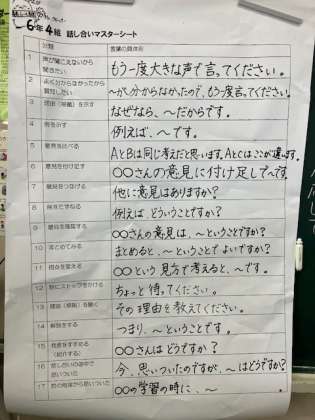 6年4組 話し合いマスターシート
分類 言葉の具体例
1 声が聞こえないから聞きたい もう一度大きな声で言ってください。
2 よく分からなかったから質問したい 〜がよく分からなかったので、もう一度言ってください。
3 理由（根拠）を示す なぜなら、〜だからです。
4 例を示す 例えば、〜です。
5 意見を比べる AとBは同じ考えだと思います。AとCはここが違います。
6 意見を付け足す 〇〇さんの意見に付け足して〜です。
7 意見をつなげる 他に意見はありますか?
8 例をたずねる 例えば、どういうことですか?
9 意見を確認する 〇〇さんの意見は、〜ということですか?
10 まとめてみる まとめると、〜ということでよいですか?
11 視点を変える 〇〇という見方で考えると、〜です。
12 話にストップをかける ちょっと待ってください。
13 理由（根拠）を聞く その理由を教えてください。
14 解説をする つまり、〜ということです。
15 発言をすすめる（紹介する） 〇〇さんはどうですか?
16 話し合いの途中で思いついた 今、思いついたのですが、〜はどうですか?
17 前の勉強から思いついた 〇〇の学習の時に、〜